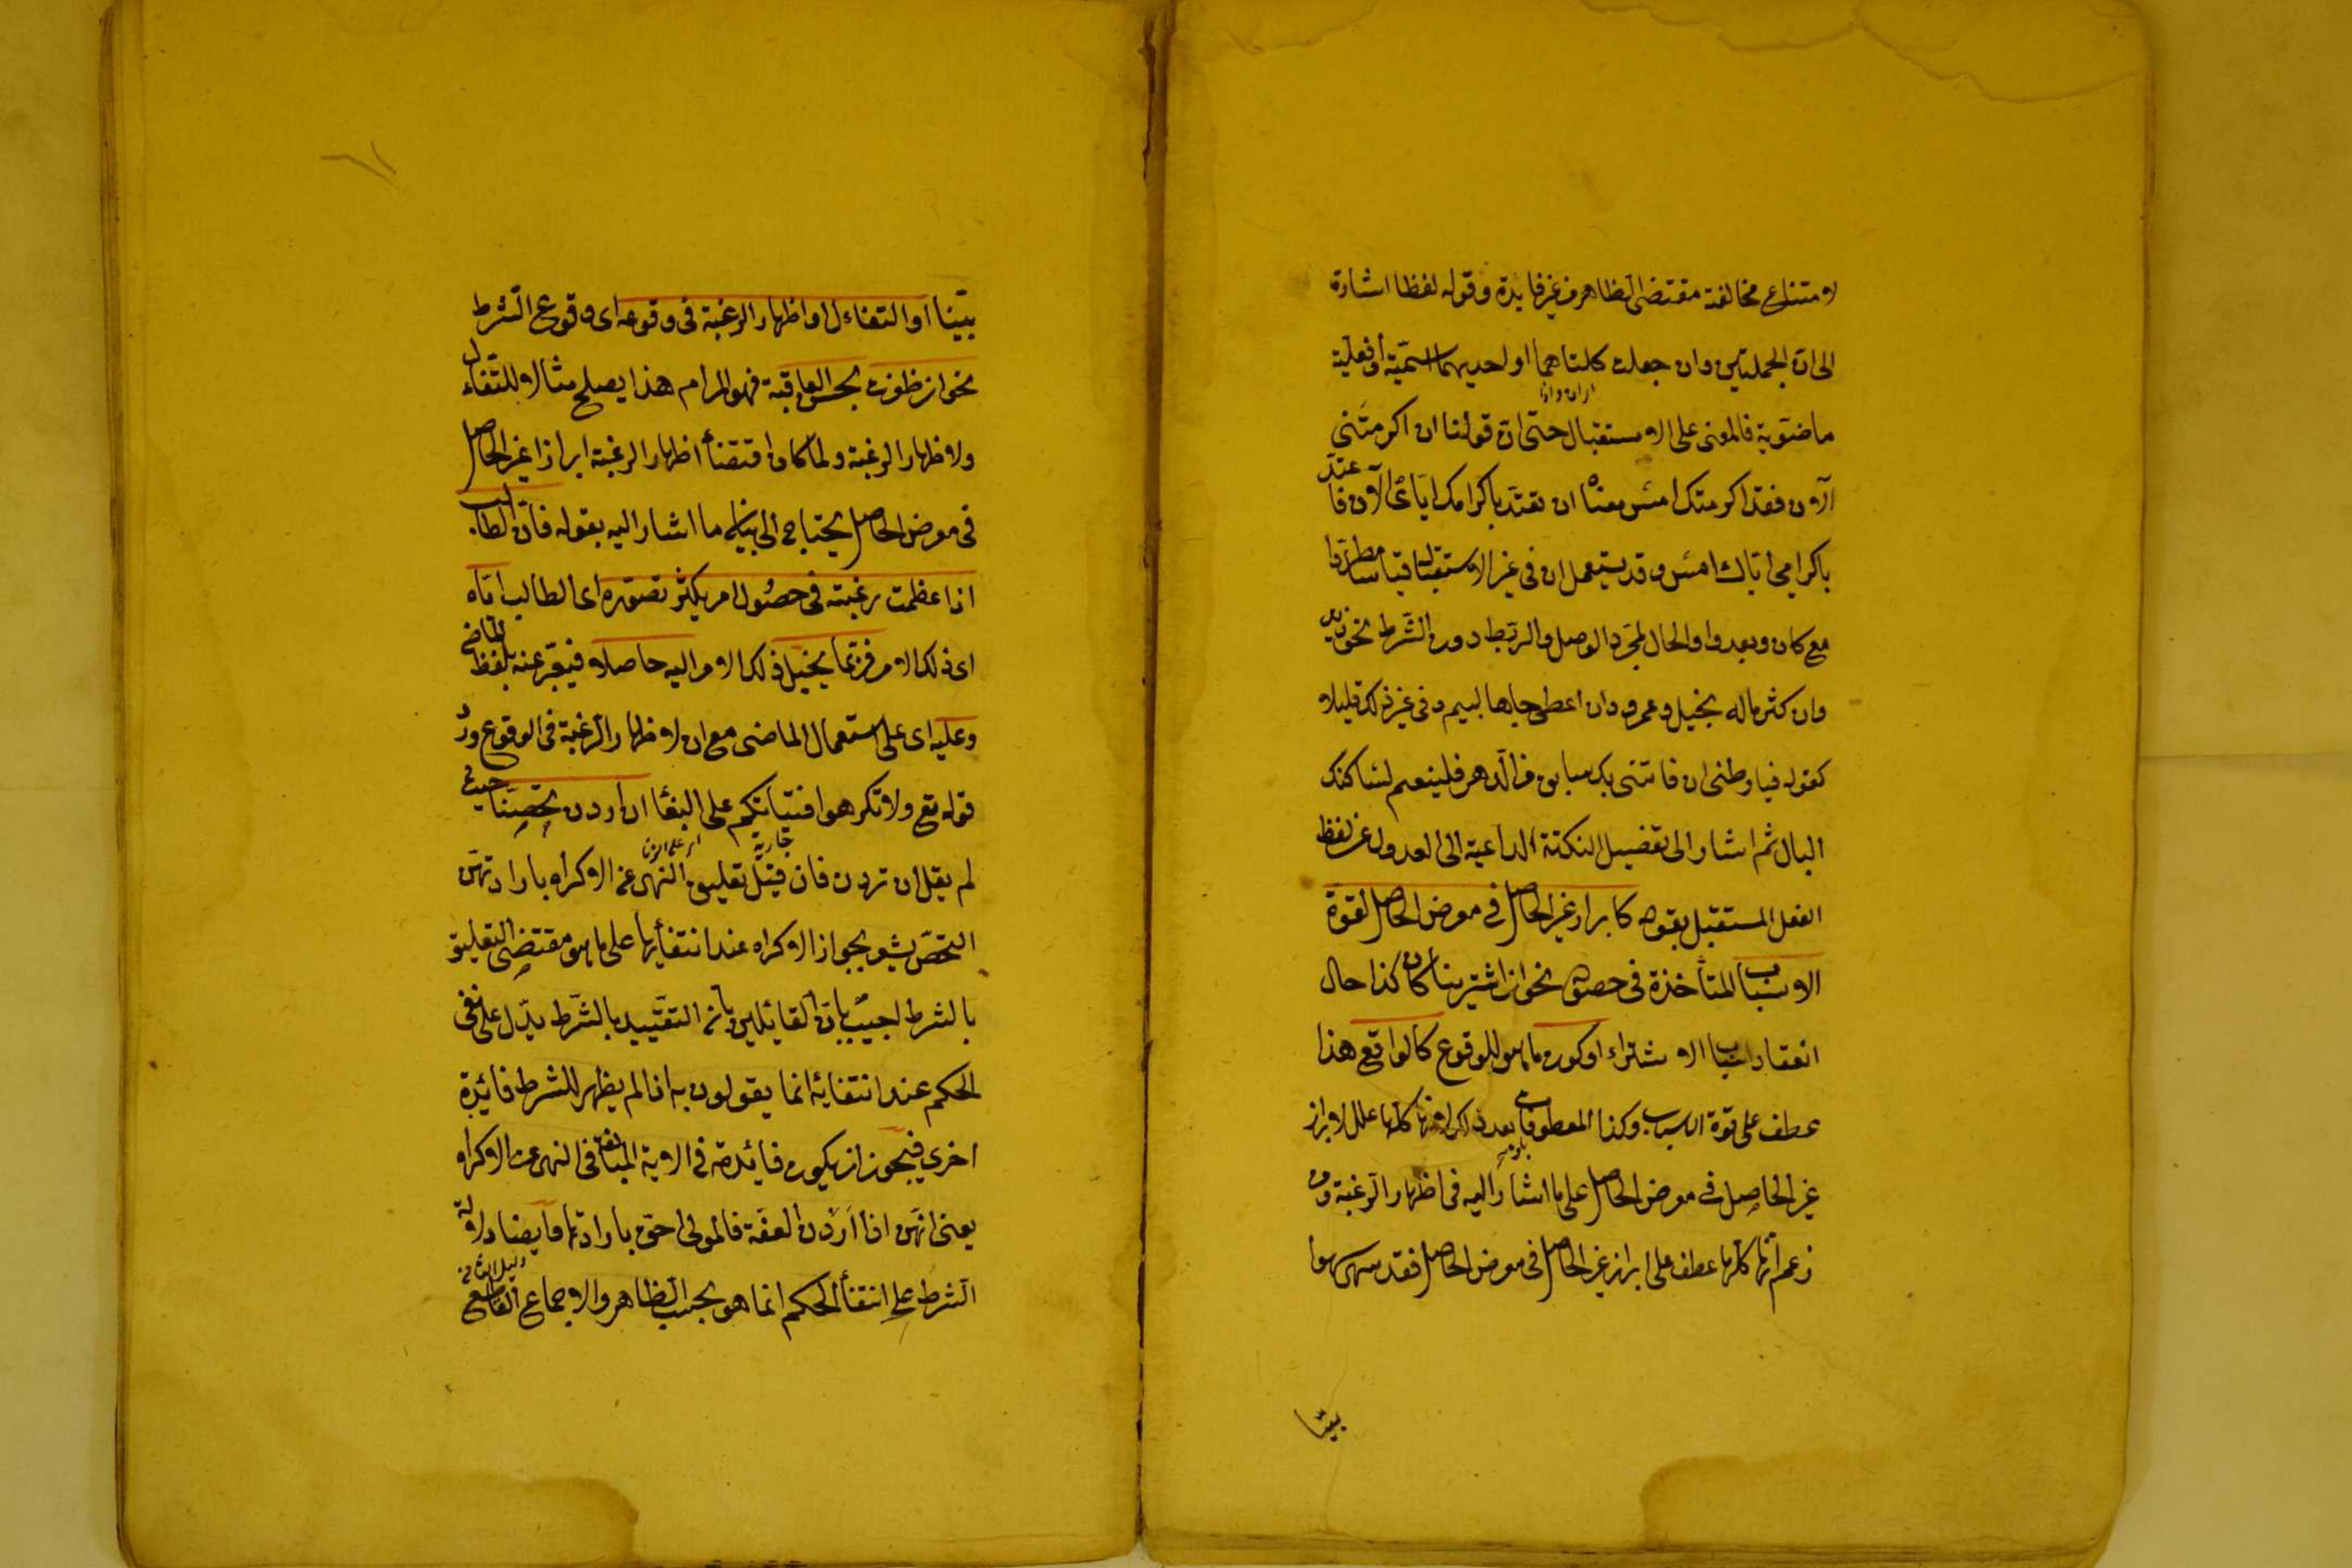 لامتناع مخالفة مقتضى الظاهر من غير فايدة وقوله لفظا اشارة
الى ان الجملتين وان جعلت كلتاهما او احديهما اسمية او فعلية
اى ان واذا
ماضوية فالمعنى على الاستقبال حتى ان قولنا ان اكرمتنى
الآن فقد اكرمتك امس معناه ان تعتد باكرامك اياى الآن فاعتد
باكرامى اياك امس وقد يستعمل ان فى غير الاستقبال قياسا مطردا
مع كان وبعد واو الحال لمجرد الوصل والربط دون الشرط نحو زيد
وان كثر ماله بخيل وعمرو وان اعطى جاها لئيم وفى غير ذلك قليلا
كقوله فيا وطنى ان فاتنى بك سابق من الدهر فلينعم لساكنك
البال ثم اشار الى تفصيل النكتة الداعية الى العدول عن لفظ
الفعل المستقبل بقوله كابراز غير الحاصل فى معرض الحاصل لقوة
الاسباب المتأخذة فى حصوله نحو ان اشترينا كان كذا حال
انعقاد اسباب الاشتراء او كون ما هو للوقوع كالواقع هذا
عطف على قوة الاسباب وكذا المعطوفات بعد ذلك لانها كلها علل لابراز
غير الحاصل فى معرض الحاصل على ما اشار اليه فى اظهار الرغبة ومن
زعم انها كلها عطف على ابراز غير الحاصل فى معرض الحاصل فقد سهى سهوا
بينا
بينا او التفاءل او اظهار الرغبة فى وقوعه اى وقوع الشرط
نحو ان ظفرت بحسن العاقبة فهو المرام هذا يصلح مثالا للتفاءل
ولاظهار الرغبة ولما كان اقتضاء اظهار الرغبة ابراز غير الحاصل
فى معرض الحاصل يحتاج الى بيان ما اشار اليه بقوله فان الطالب
اذا عظمت رغبته فى حصول امر يكثر تصوره اى الطالب اياه
اى ذلك الامر فربما يخيل ذلك الامر اليه حاصلا فيعبر عنه بلفظ الماضى
وعليه اى على استعمال الماضى مع ان لاظهار الرغبة فى الوقوع ورد
قوله تع ولا تكرهوا فتياتكم على البغاء ان اردن تحصنا حيث
جاريه
اى على الزنا
لم يقل ان يردن فان قيل تعليق النهى عن الاكراه بارادتهن
التحصن يشعر بجواز الاكراه عند انتفائها على ما هو مقتضى التعليق
بالشرط اجيب بان القائلين بان التقييد بالشرط يدل على نفى
الحكم عند انتفائه انما يقولون به اذا لم يظهر للشرط فائدة
اخرى فيجوز ان يكون فائدته فى الاية المبالغة فى النهى عن الاكراه
يعنى انهن اذا اردن العفة فالمولى احق بارادتها وايضا دلالة
دليل الثانى
الشرط على انتفاء الحكم انما هو بحسب الظاهر والاجماع القاطع